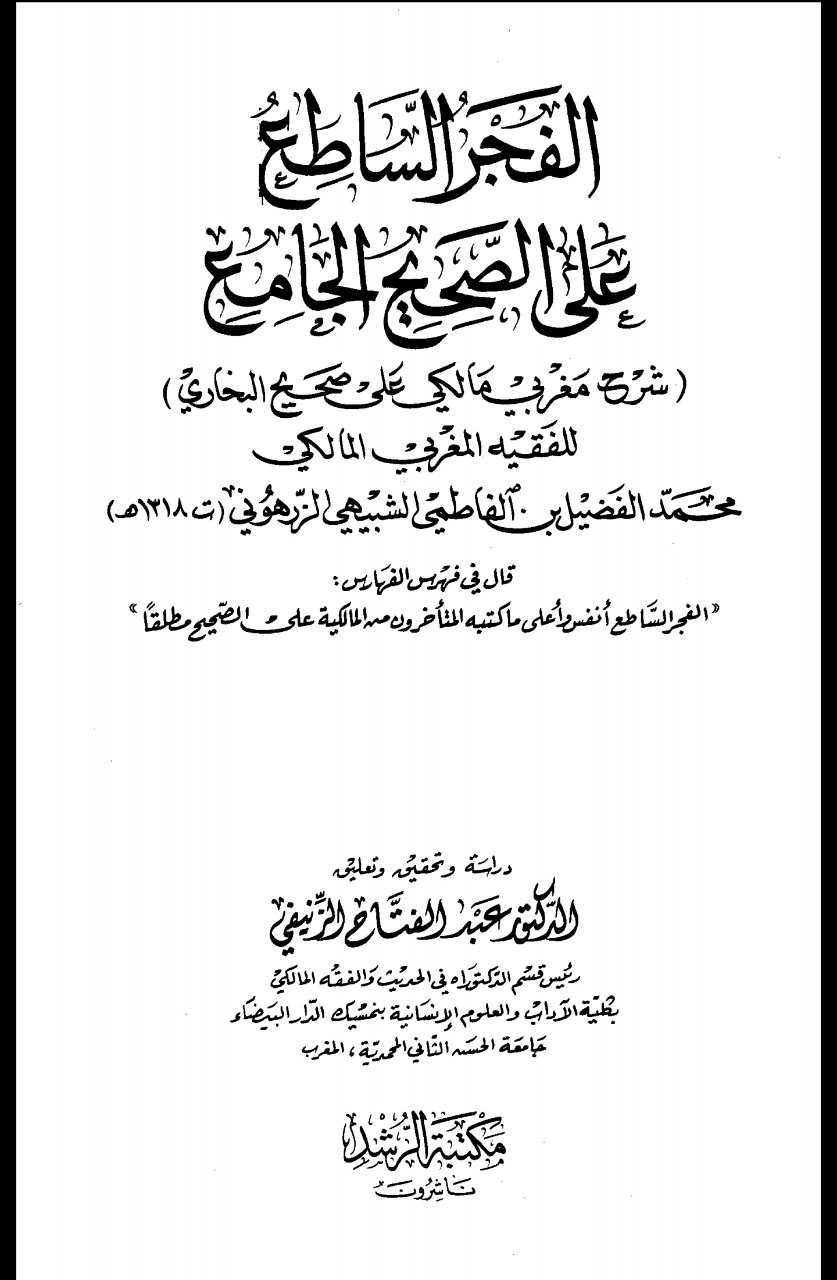 الفَجْرُ السَّاطِعُ
عَلَى الصَّحِيحِ الجَامِعِ
(شرح مغربي مالكي على صحيح البخاري)
للفقيه المغربي المالكي
محمد الفضيل بن الفاطمي الشبيهي الزرهوني (ت ١٣١٨هـ)
قال في فهرس الفهارس:
«الفجر السَّاطع أنفس وأعلى ما كتبه المتأخرون من المالكية على الصّحيح مطلقاً»
دراسة وتحقيق وتعليق
الدّكتور عبد الفتّاح الزّنيفي
رئيس قسم الدكتوراه في الحديث والفقه المالكي
بكليّة الآداب والعلوم الإنسانية بنمسيك الدّار البيضاء
جامعة الحسن الثاني المحمديّة، المغرب
مكتبة الرُّشد
ناشرون